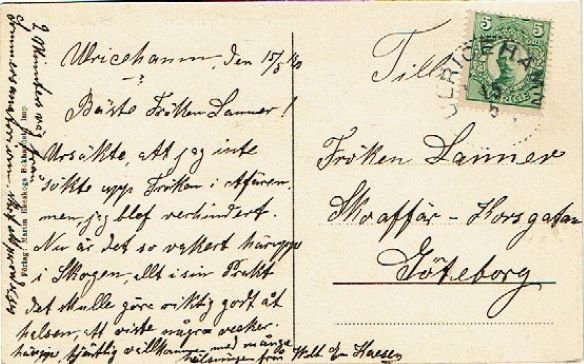 Ulricehamn, den 15/5 10
Bäste Fröken Lanner!
Ursäkta, att jag inte
sökte upp Fröken i Afären
men jag blef verhindert.
Nu är det so vakert häruppe
i Skogen, allt i sin Prakt
det skulle göra riktig godt åt
helsen, att viste några veckor.
häruppe, hjärtlig välkommen med många
hälsningar från
2 Minuters väg från
Förlag: Martin Ekeskogs Bokhandel,
Till
Fröken Lanner
Skoaffär - Korsgatan
Göteborg
5 5
ULRICEHAMN
15 5